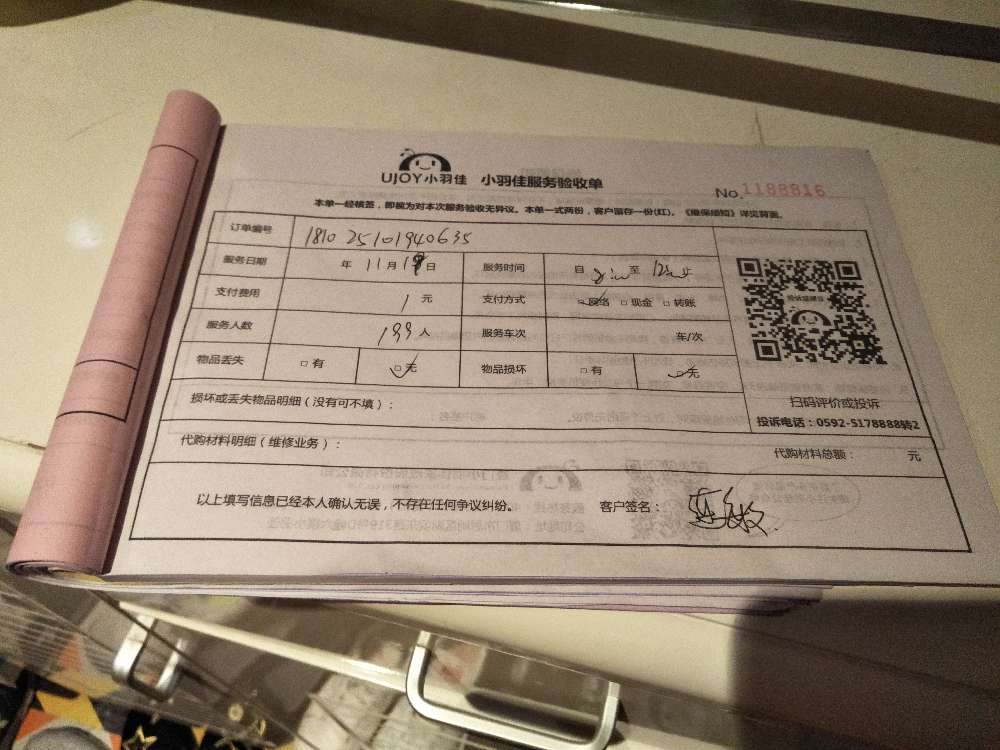 UJOY小羽佳 小羽佳服务验收单
No.1188816
本单一经核签，即视为对本次服务验收无异议。本单一式两份，客户留存一份(红)。《维保须知》详见背面。
订单编号 1810 25101940635
服务日期 年 11月19日 服务时间 自 至
支付费用 1 元 支付方式 □网络 □现金 □转账
服务人数 199人 服务车次 车/次
物品丢失 □有 □无 物品损坏 □有 □无
扫码评价或投诉
损坏或丢失物品明细（没有可不填）：
投诉电话：0592-5178888转2
代购材料明细（维修业务）： 代购材料总额： 元
以上填写信息已经本人确认无误，不存在任何争议纠纷。 客户签名：